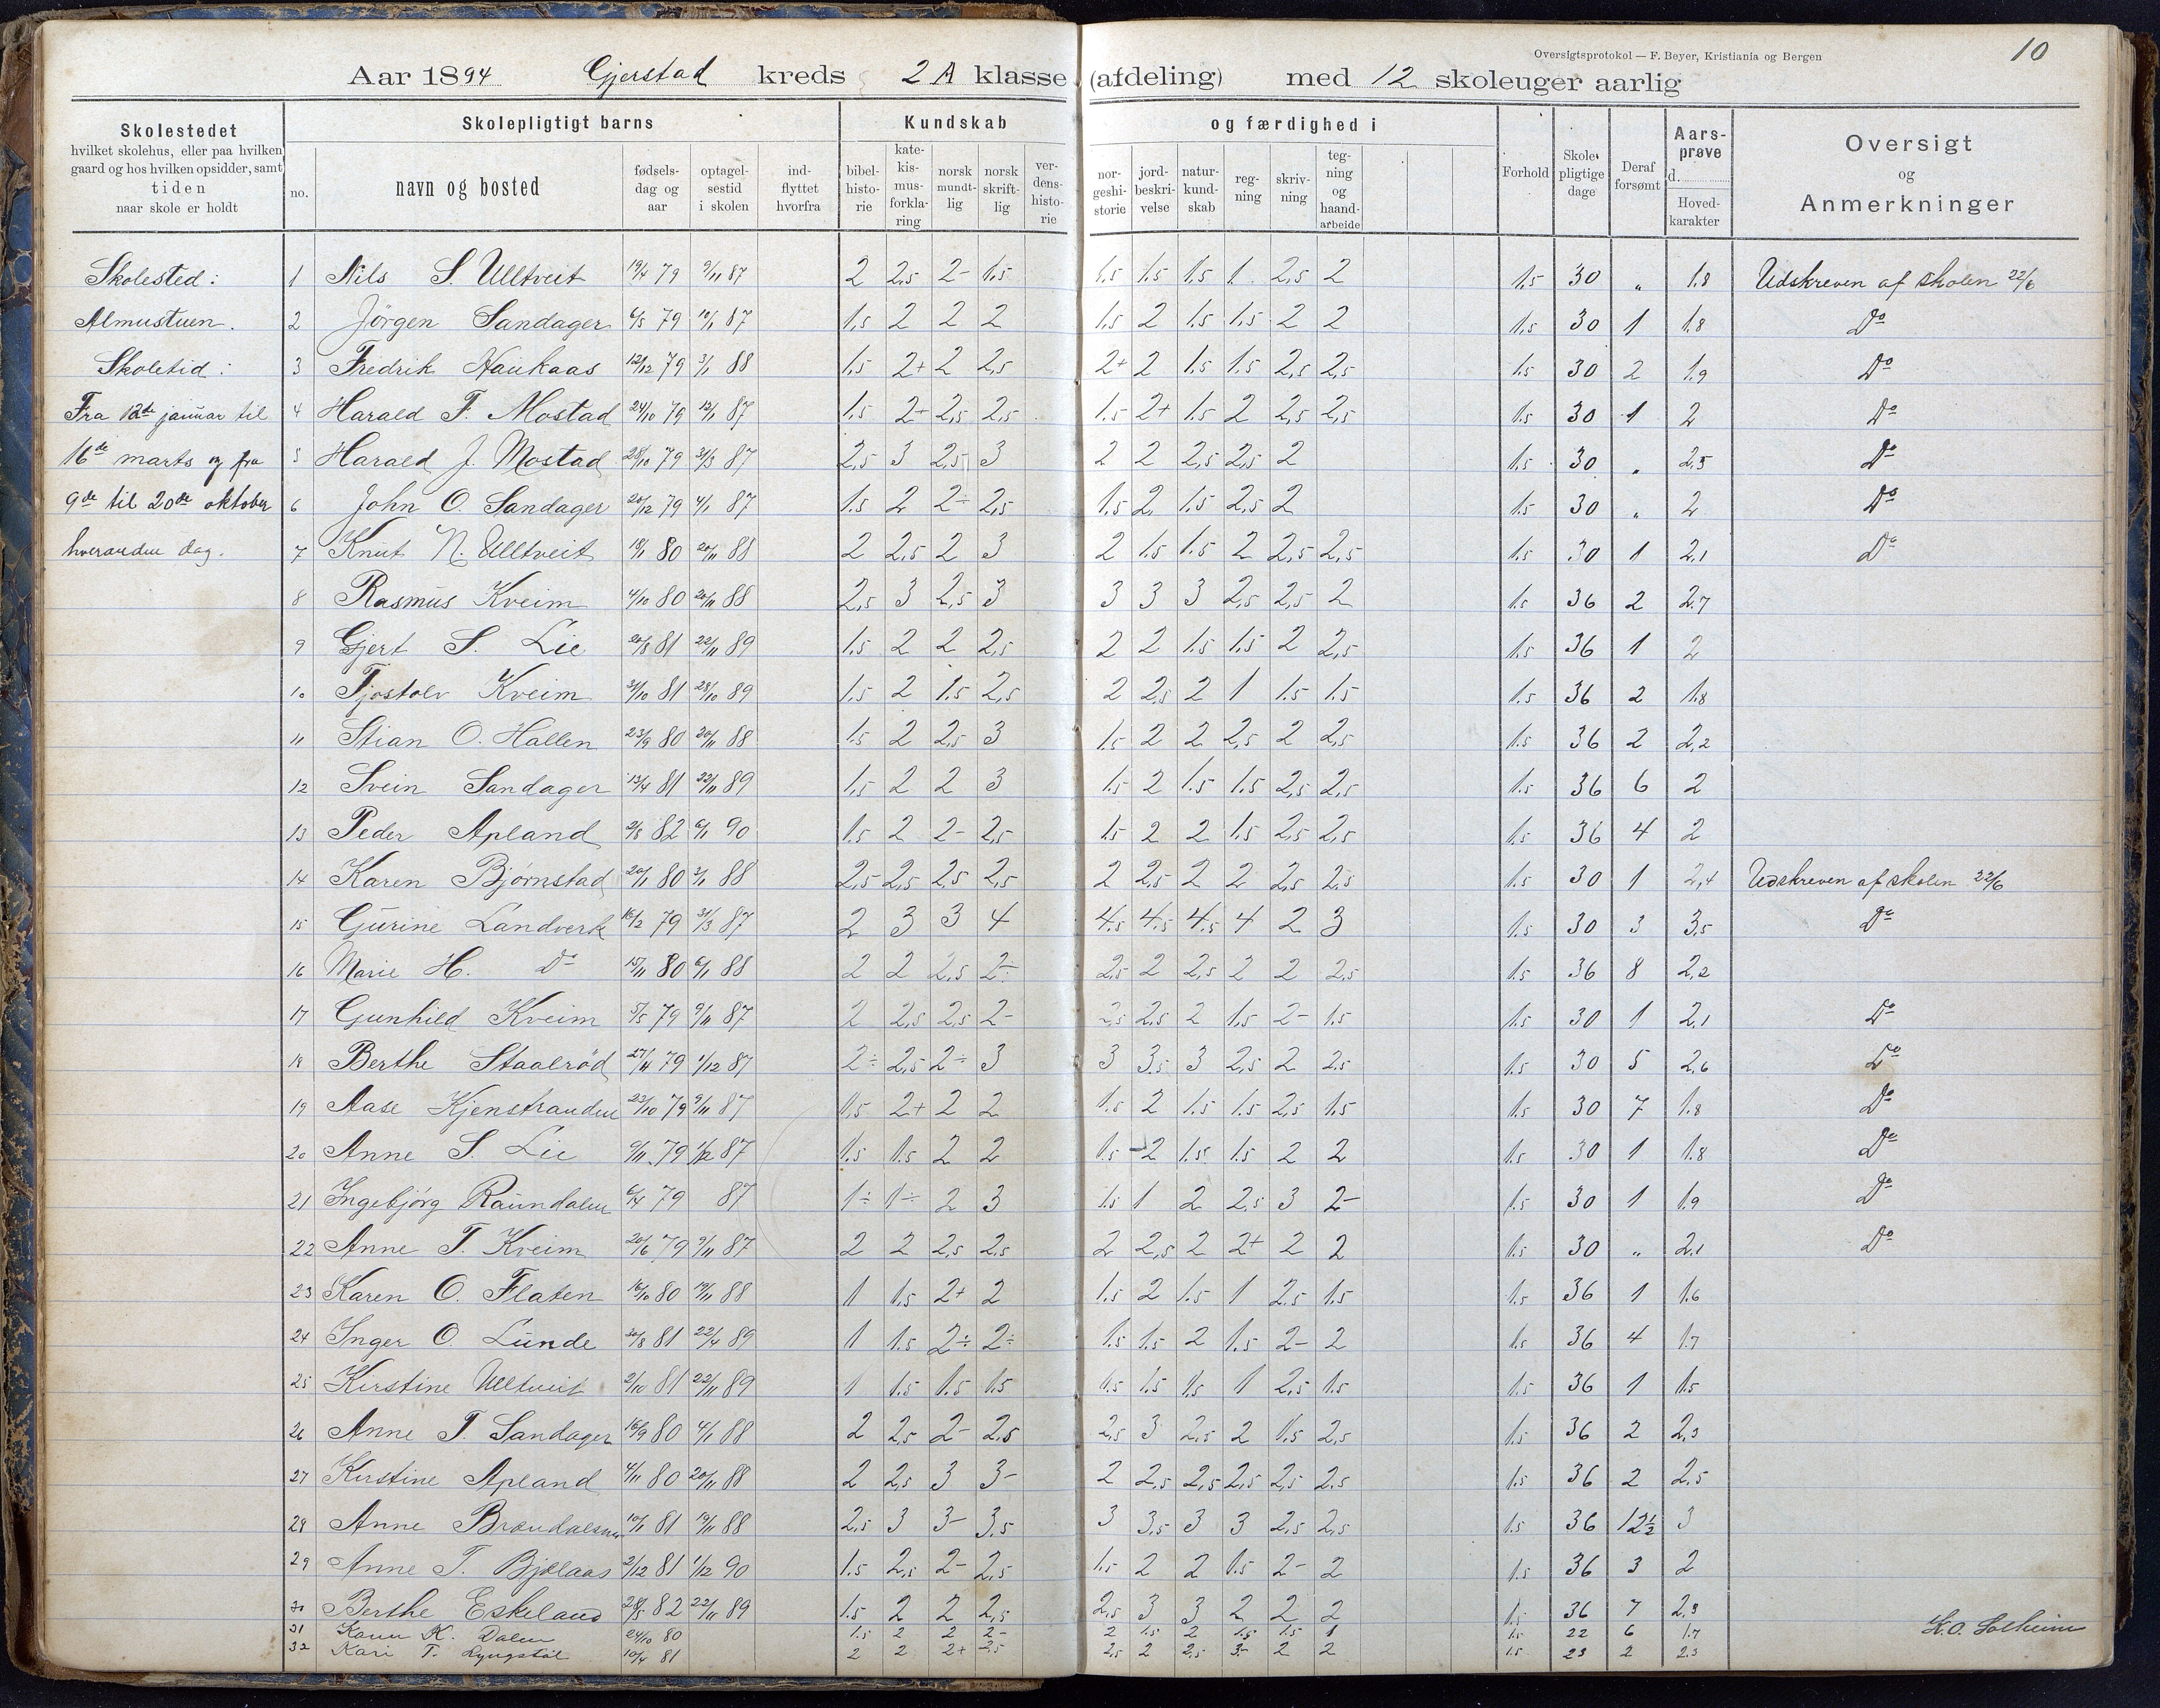 Oversigtsprotokol — F. Beyer, Kristiania og Bergen
10
Aar 1894 Gjerstad kreds 2 A klasse (afdeling) med 12 skoleuger aarlig
Skolestedet hvilket skolehus, eller paa hvilken gaard og hos hvilken opsidder, samt tiden naar skole er holdt
Skolepligtigt barns
Kundskab og færdighed i
no. navn og bosted fødsels-dag og aar optagel-sestid i skolen ind-flyttet hvorfra bibel-histo-rie kate-kis-mus-forkla-ring norsk mundt-lig norsk skrift-lig ver-dens-histo-rie nor-geshi-storie jord-beskri-velse natur-kund-skab reg-ning skriv-ning teg-ning og haand-arbeide Forhold Skole-pligtige dage Deraf forsømt Aars-prøve d. Hoved-karakter Oversigt og Anmerkninger
Skolested:
Almustuen.
Skoletid:
Fra 12de januar til
16de marts og fra
9de til 20de oktober
hverandre dag.
1 Nils S. Ulltveit 19/4 79 9/11 87 2 2,5 2- 1,5 1,5 1,5 1,5 1 2,5 2 1,5 30 „ 1,8 Udskreven af skolen 22/6
2 Jörgen Sandager 6/5 79 10/1 87 1,5 2 2 2 1,5 2 1,5 1,5 2 2 1,5 30 1 1,8 Do
3 Fredrik Haukaas 12/12 79 3/1 88 1,5 2+ 2 2,5 2+ 2 1,5 1,5 2,5 2,5 1,5 30 2 1,9 Do
4 Harald F. Mostad 24/10 79 12/1 87 1,5 2+ 2,5 2,5 1,5 2+ 1,5 2 2,5 2,5 1,5 30 1 2 Do
5 Harald J. Mostad 28/10 79 31/3 87 2,5 3 2,5 3 2 2 2,5 2,5 2 1,5 30 „ 2,5 Do
6 John O. Sandager 20/12 79 4/1 87 1,5 2 2÷ 2,5 1,5 2 1,5 2,5 2 1,5 30 „ 2 Do
7 Knut N. Ulltveit 18/1 80 20/11 88 2 2,5 2 3 2 1,5 1,5 2 2,5 2,5 1,5 30 1 2,1 Do
8 Rasmus Kveim 4/10 80 20/11 88 2,5 3 2,5 3 3 3 3 2,5 2,5 2 1,5 36 2 2,7
9 Gjert S. Lie 20/8 81 22/11 89 1,5 2 2 2,5 2 2 1,5 1,5 2 2,5 1,5 36 1 2
10 Tjostolv Kveim 31/10 81 28/10 89 1,5 2 1,5 2,5 2 2,5 2 1 1,5 1,5 1,5 36 2 1,8
11 Stian O. Hallen 23/9 80 20/11 88 1,5 2 2,5 3 1,5 2 2 2,5 2 2,5 1,5 36 2 2,2
12 Svein Sandager 13/4 81 22/11 89 1,5 2 2 3 1,5 2 1,5 1,5 2,5 2,5 1,5 36 6 2
13 Peder Apland 2/8 82 6/1 90 1,5 2 2- 2,5 1,5 2 2 1,5 2,5 2,5 1,5 36 4 2
14 Karen Björnstad 20/1 80 3/1 88 2,5 2,5 2,5 2,5 2 2,5 2 2 2,5 2,5 1,5 30 1 2,4 Udskreven af skolen 22/6
15 Gurine Landverk 16/2 79 31/3 87 2 3 3 4 4,5 4,5 4,5 4 2 3 1,5 30 3 3,5 Do
16 Marie H. Do 15/11 80 6/1 88 2 2 2,5 2÷ 2,5 2 2,5 2 2 2,5 1,5 36 8 2,2
17 Gunhild Kveim 5/5 79 9/11 87 2 2,5 2,5 2- 2,5 2,5 2 1,5 2- 1,5 1,5 30 1 2,1 Do
18 Berthe Staalröd 27/11 79 1/12 87 2÷ 2,5 2÷ 3 3 3,5 3 2,5 2 2,5 1,5 30 5 2,6 Do
19 Aase Kjenstranden 23/10 79 9/11 87 1,5 2+ 2 2 1,5 2 1,5 1,5 2,5 1,5 1,5 30 7 1,8 Do
20 Anne S. Lie 9/11 79 1/12 87 1,5 1,5 2 2 1,5 -2 1,5 1,5 2 2 1,5 30 1 1,8 Do
21 Ingebjörg Raundalen 6/4 79 87 1÷ 1÷ 2 3 1,5 1 2 2,5 3 2- 1,5 30 1 1,9 Do
22 Anne T. Kveim 20/6 79 9/11 87 2 2 2,5 2,5 2 2,5 2 2+ 2 2 1,5 30 „ 2,1 Do
23 Karen O. Flaten 16/10 80 19/11 88 1 1,5 2+ 2 1,5 2 1,5 1 2,5 1,5 1,5 36 1 1,6
24 Inger O. Lunde 30/8 81 22/4 89 1 1,5 2÷ 2÷ 1,5 1,5 2 1,5 2- 2 1,5 36 4 1,7
25 Kirstine Ulltveit 2/10 81 22/11 89 1 1,5 1,5 1,5 1,5 1,5 1,5 1 2,5 1,5 1,5 36 1 1,5
26 Anne T. Sandager 16/9 80 4/1 88 2 2,5 2- 2,5 2,5 3 2,5 2 1,5 2,5 1,5 36 2 2,3
27 Kirstine Apland 4/11 80 20/11 88 2 2,5 3 3- 2 2,5 2,5 2,5 2,5 2,5 1,5 36 2 2,5
28 Anne 10/1 81 19/11 88 2,5 3 3- 3,5 3 3,5 3 3 2,5 2,5 1,5 36 12½ 3
29 Anne T. Bjålaas 2/12 81 1/12 90 1,5 2,5 2- 2,5 1,5 2 2 1,5 2- 2 1,5 36 3 2
30 Berthe Eskeland 28/5 82 22/11 89 1,5 2 2 2,5 2,5 3 3 2 2 2 1,5 36 7 2,3
31 Karen K. Dalen 24/10 80 1,5 2 2 2- 2 1,5 2 1,5 1,5 1 1,5 22 6 1,7
32 Kari T. Lyngstöl 10/4 81 2 2 2+ 2,5 2,5 2 2,5 3- 2 2 1,5 23 2 2,3
K.O. Solheim